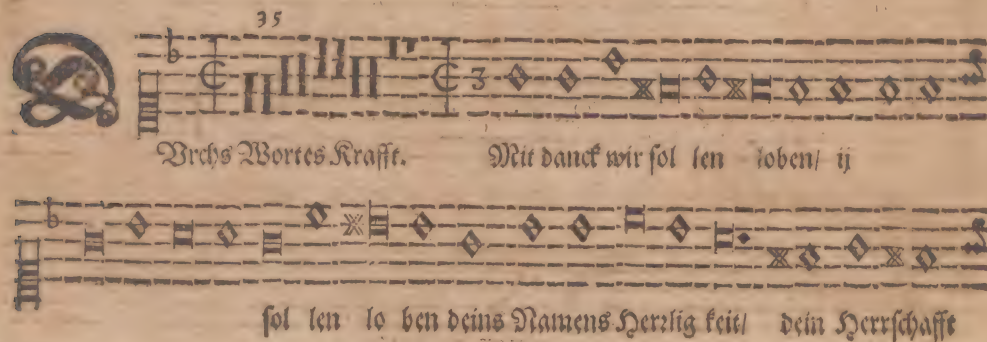 35
DVrchs Wortes Krafft. Mit danck wir sol len loben/ ij
sol len lo ben deins Namens Herrlig keit/ dein Herrschafft